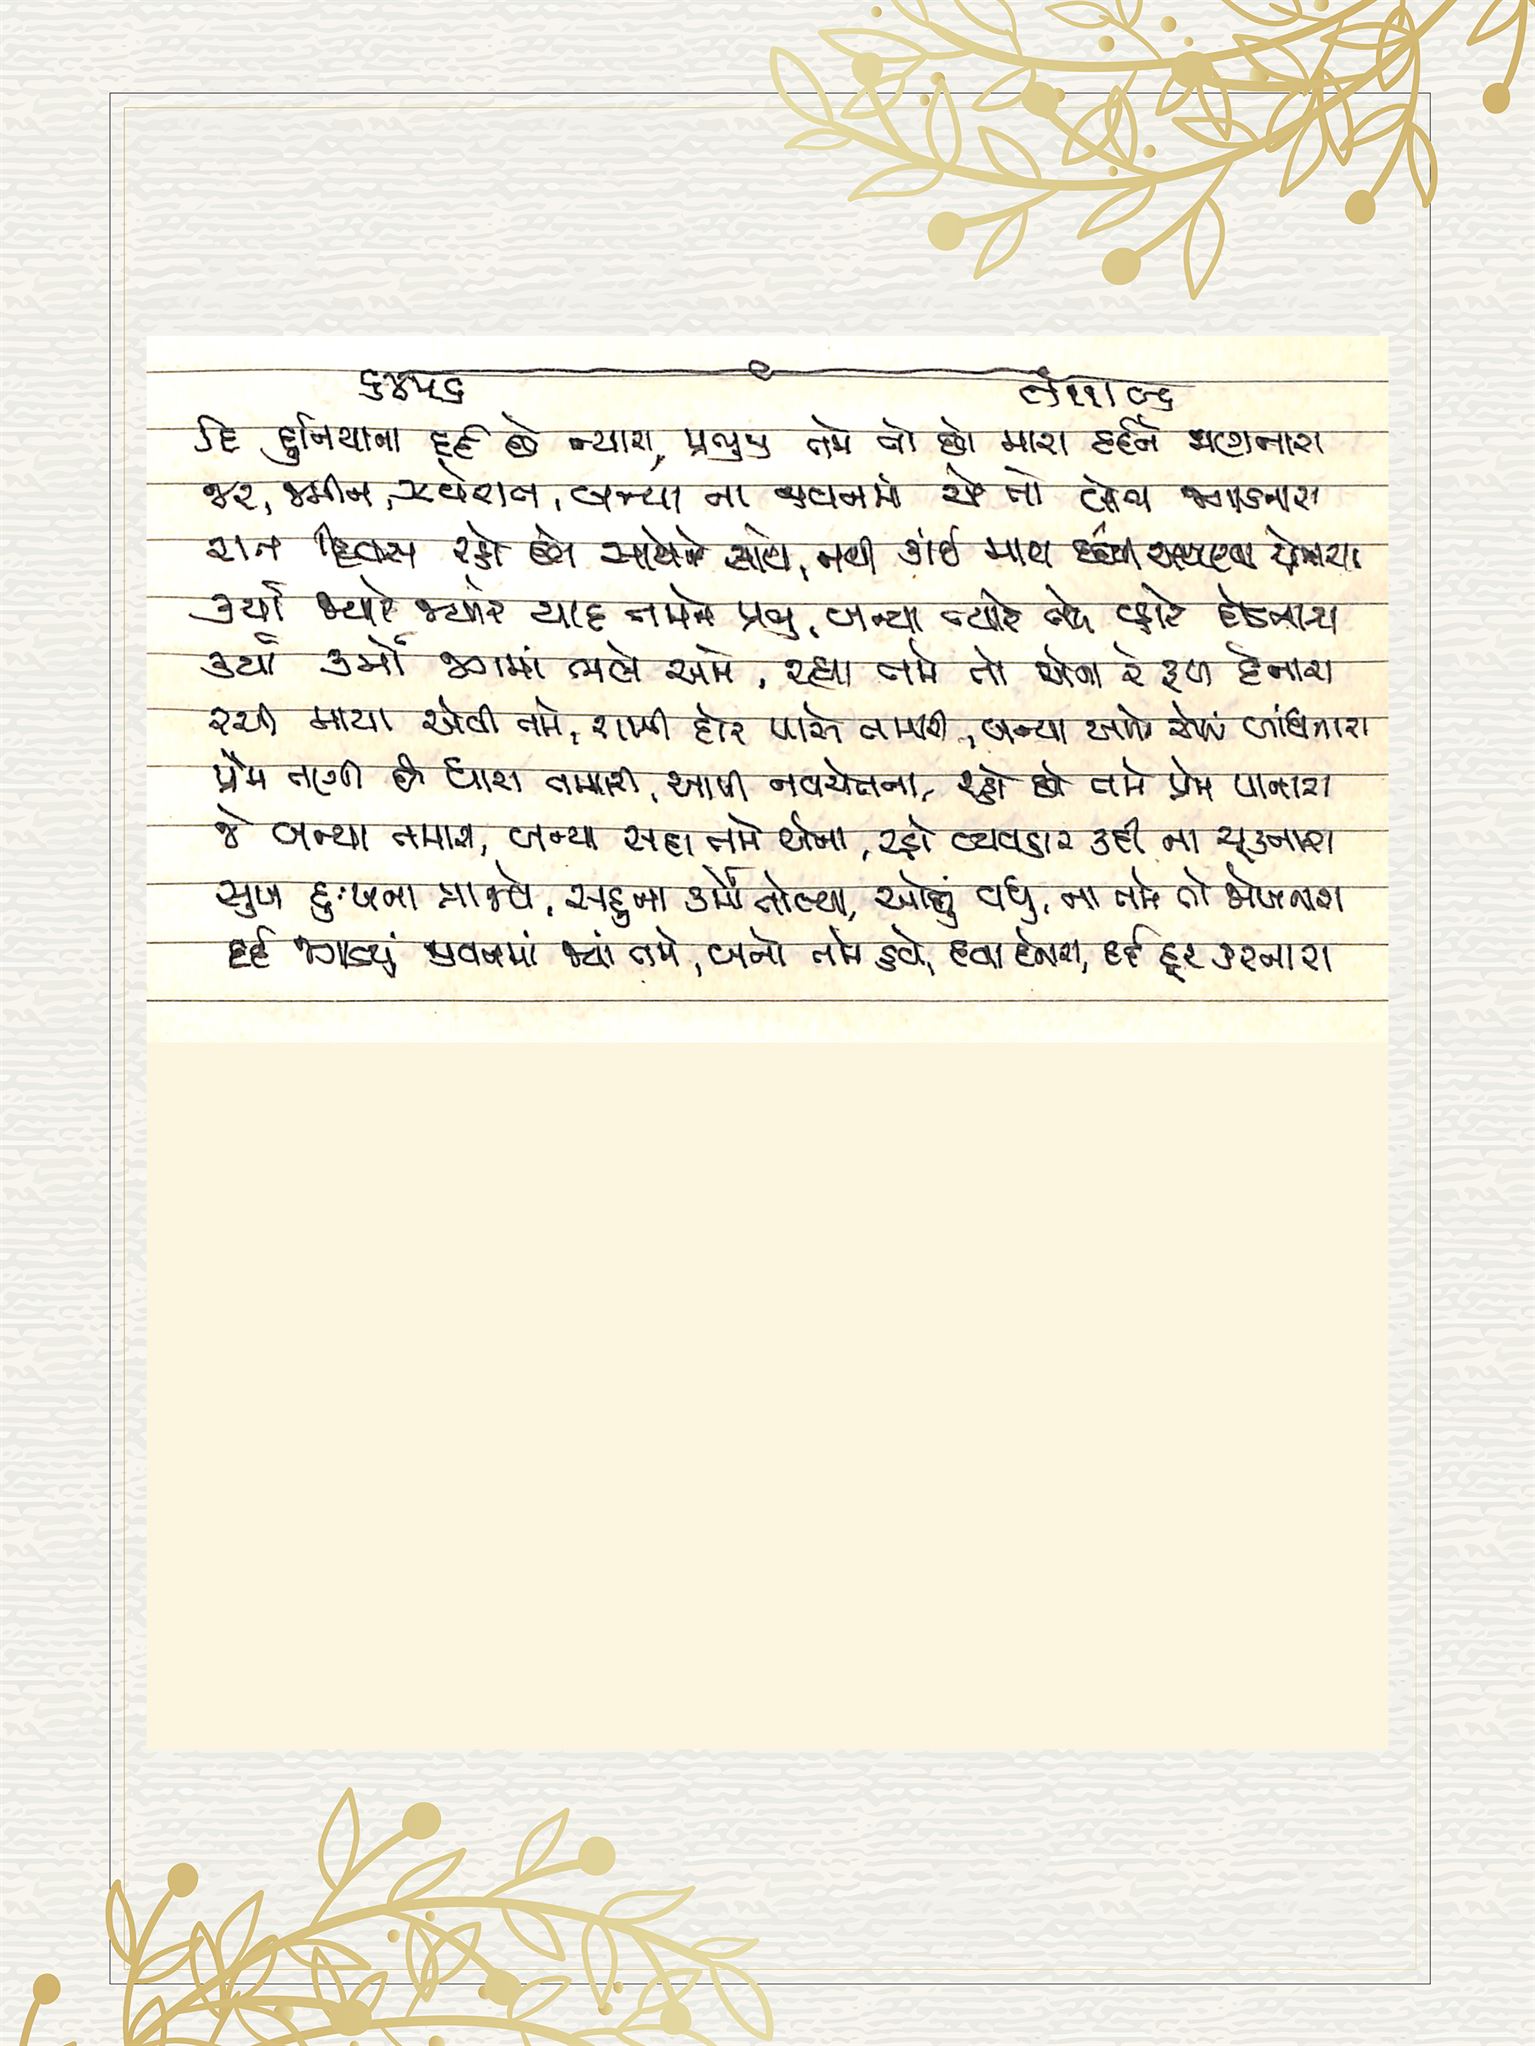 ૬૪૫૬
દિ દુનિયાના દર્દ છે ન્યારા, પ્રભુ તમે તો છો મારા દર્દને જાણનારા
જર, જમીન, જોરાત, બન્યા ના જીવનમાં એ તો વેર જગાડનારા
રાત દિવસ રહો છો સાથેને સાથે, નથી કાંઈ માથ
કર્યા જ્યારે જ્યારે યાદ તમને પ્રભુ, બન્યા ત્યારે તમે દ્વારે દોડનારા
કર્યા કર્મો જગમાં ભલે અમે, રહ્યા તમે તો એના રે ફળ દેનારા
રચી માયા એવી તમે, રાખી દોર પાસે તમારી, બન્યા અમે એમાં બંધાનારા
પ્રેમ તણી છે ધારા તમારી, આપી નવચેતના, રહો છો તમે પ્રેમ પાનારા
જે બન્યા તમારા, બન્યા સદા તમે એના, રહ્યો વ્યવહાર કદી ના ચૂકનારા
સુખ દુઃખના ત્રાજવે, સહુના કર્મો તોલ્યા, ઓછું વધુ, ના તમે તો જોખનારા
દર્દ જગાડ્યું જીવનમાં જ્યાં તમે, બનો તમે હવે, દવા દેનારા, દર્દ દૂર કરનારા